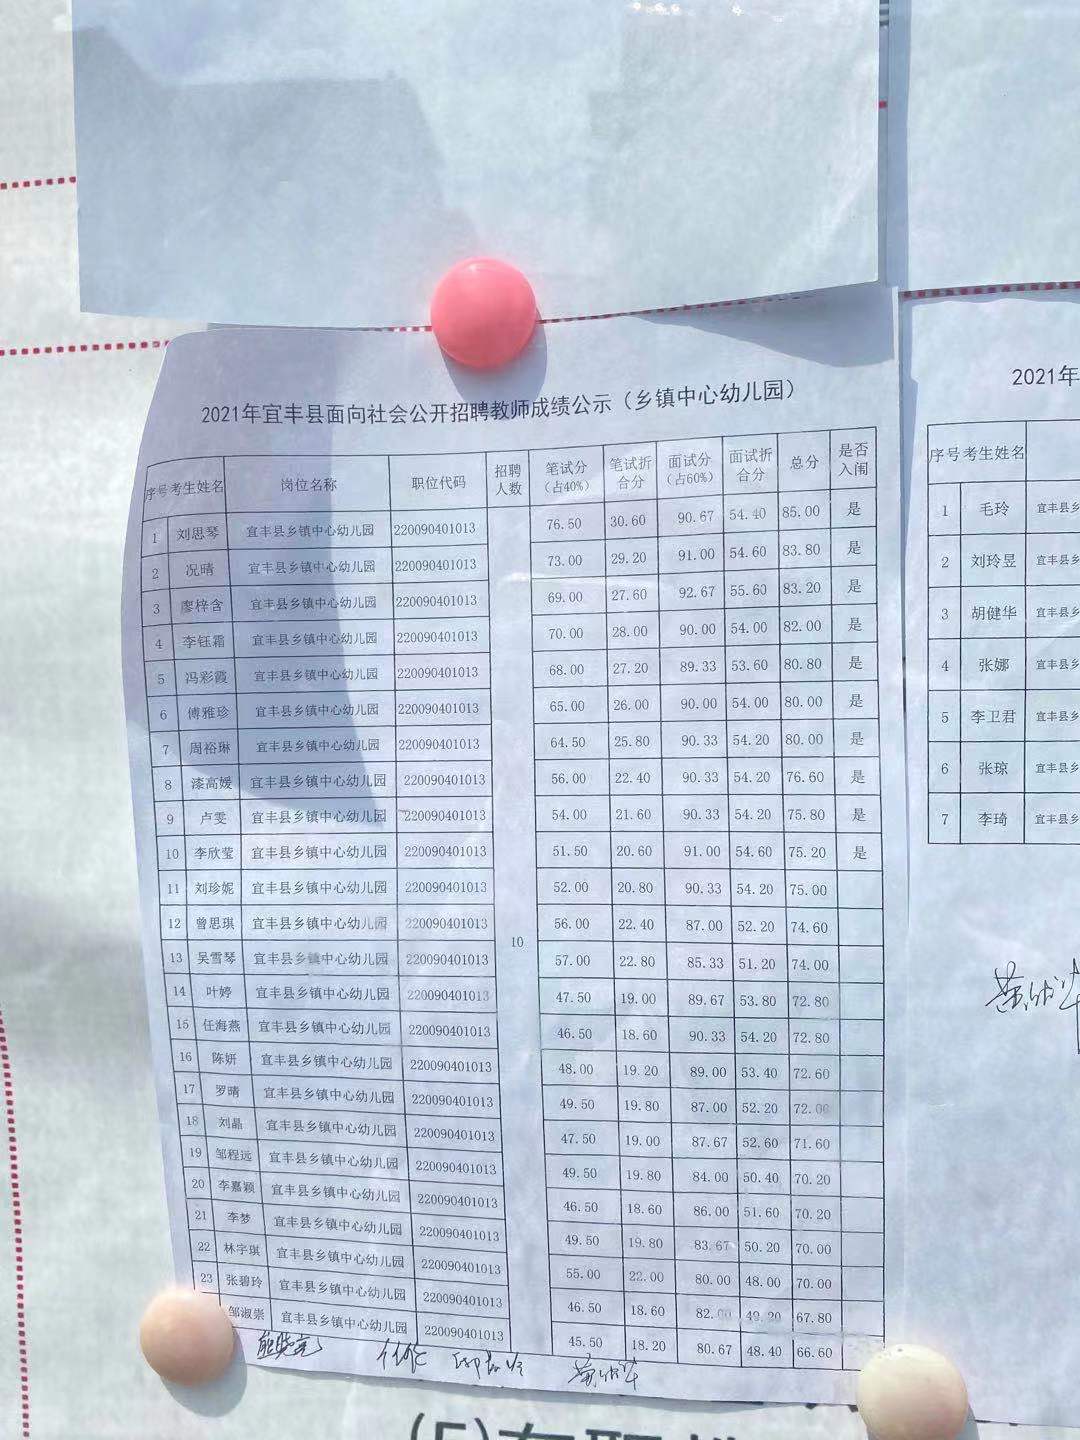 2021年宜丰县面向社会公开招聘教师成绩公示（乡镇中心幼儿园）
序号 考生姓名 岗位名称 职位代码 招聘人数 笔试分（占40%） 笔试折合分 面试分（占60%） 面试折合分 总分 是否入闱
1 刘思琴 宜丰县乡镇中心幼儿园 220090401013 76.50 30.60 90.67 54.40 85.00 是
2 况晴 宜丰县乡镇中心幼儿园 220090401013 73.00 29.20 91.00 54.60 83.80 是
3 廖梓含 宜丰县乡镇中心幼儿园 220090401013 69.00 27.60 92.67 55.60 83.20 是
4 李钰霜 宜丰县乡镇中心幼儿园 220090401013 70.00 28.00 90.00 54.00 82.00 是
5 冯彩霞 宜丰县乡镇中心幼儿园 220090401013 68.00 27.20 89.33 53.60 80.80 是
6 傅雅珍 宜丰县乡镇中心幼儿园 220090401013 65.00 26.00 90.00 54.00 80.00 是
7 周裕琳 宜丰县乡镇中心幼儿园 220090401013 64.50 25.80 90.33 54.20 80.00 是
8 漆高媛 宜丰县乡镇中心幼儿园 220090401013 56.00 22.40 90.33 54.20 76.60 是
9 卢雯 宜丰县乡镇中心幼儿园 220090401013 54.00 21.60 90.33 54.20 75.80 是
10 李欣莹 宜丰县乡镇中心幼儿园 220090401013 51.50 20.60 91.00 54.60 75.20 是
11 刘珍妮 宜丰县乡镇中心幼儿园 220090401013 52.00 20.80 90.33 54.20 75.00
12 曾思琪 宜丰县乡镇中心幼儿园 220090401013 56.00 22.40 87.00 52.20 74.60
10
13 吴雪琴 宜丰县乡镇中心幼儿园 220090401013 57.00 22.80 85.33 51.20 74.00
14 叶婷 宜丰县乡镇中心幼儿园 220090401013 47.50 19.00 89.67 53.80 72.80
15 任海燕 宜丰县乡镇中心幼儿园 220090401013 46.50 18.60 90.33 54.20 72.80
16 陈妍 宜丰县乡镇中心幼儿园 220090401013 48.00 19.20 89.00 53.40 72.60
17 罗晴 宜丰县乡镇中心幼儿园 220090401013 49.50 19.80 87.00 52.20 72.00
18 刘晶 宜丰县乡镇中心幼儿园 220090401013 47.50 19.00 87.67 52.60 71.60
19 邹程远 宜丰县乡镇中心幼儿园 220090401013 49.50 19.80 84.00 50.40 70.20
20 李嘉颖 宜丰县乡镇中心幼儿园 220090401013 46.50 18.60 86.00 51.60 70.20
21 李梦 宜丰县乡镇中心幼儿园 220090401013 49.50 19.80 83.67 50.20 70.00
22 林宇琪 宜丰县乡镇中心幼儿园 220090401013 55.00 22.00 80.00 48.00 70.00
23 张碧玲 宜丰县乡镇中心幼儿园 220090401013 46.50 18.60 82.00 49.20 67.80
邹淑崇 宜丰县乡镇中心幼儿园 220090401013 45.50 18.20 80.67 48.40 66.60
2021年
序号 考生姓名
1 毛玲 宜丰县乡
2 刘玲昱 宜丰县乡
3 胡健华 宜丰县乡
4 张娜 宜丰县乡
5 李卫君 宜丰县乡
6 张琼 宜丰县乡
7 李琦 宜丰县乡